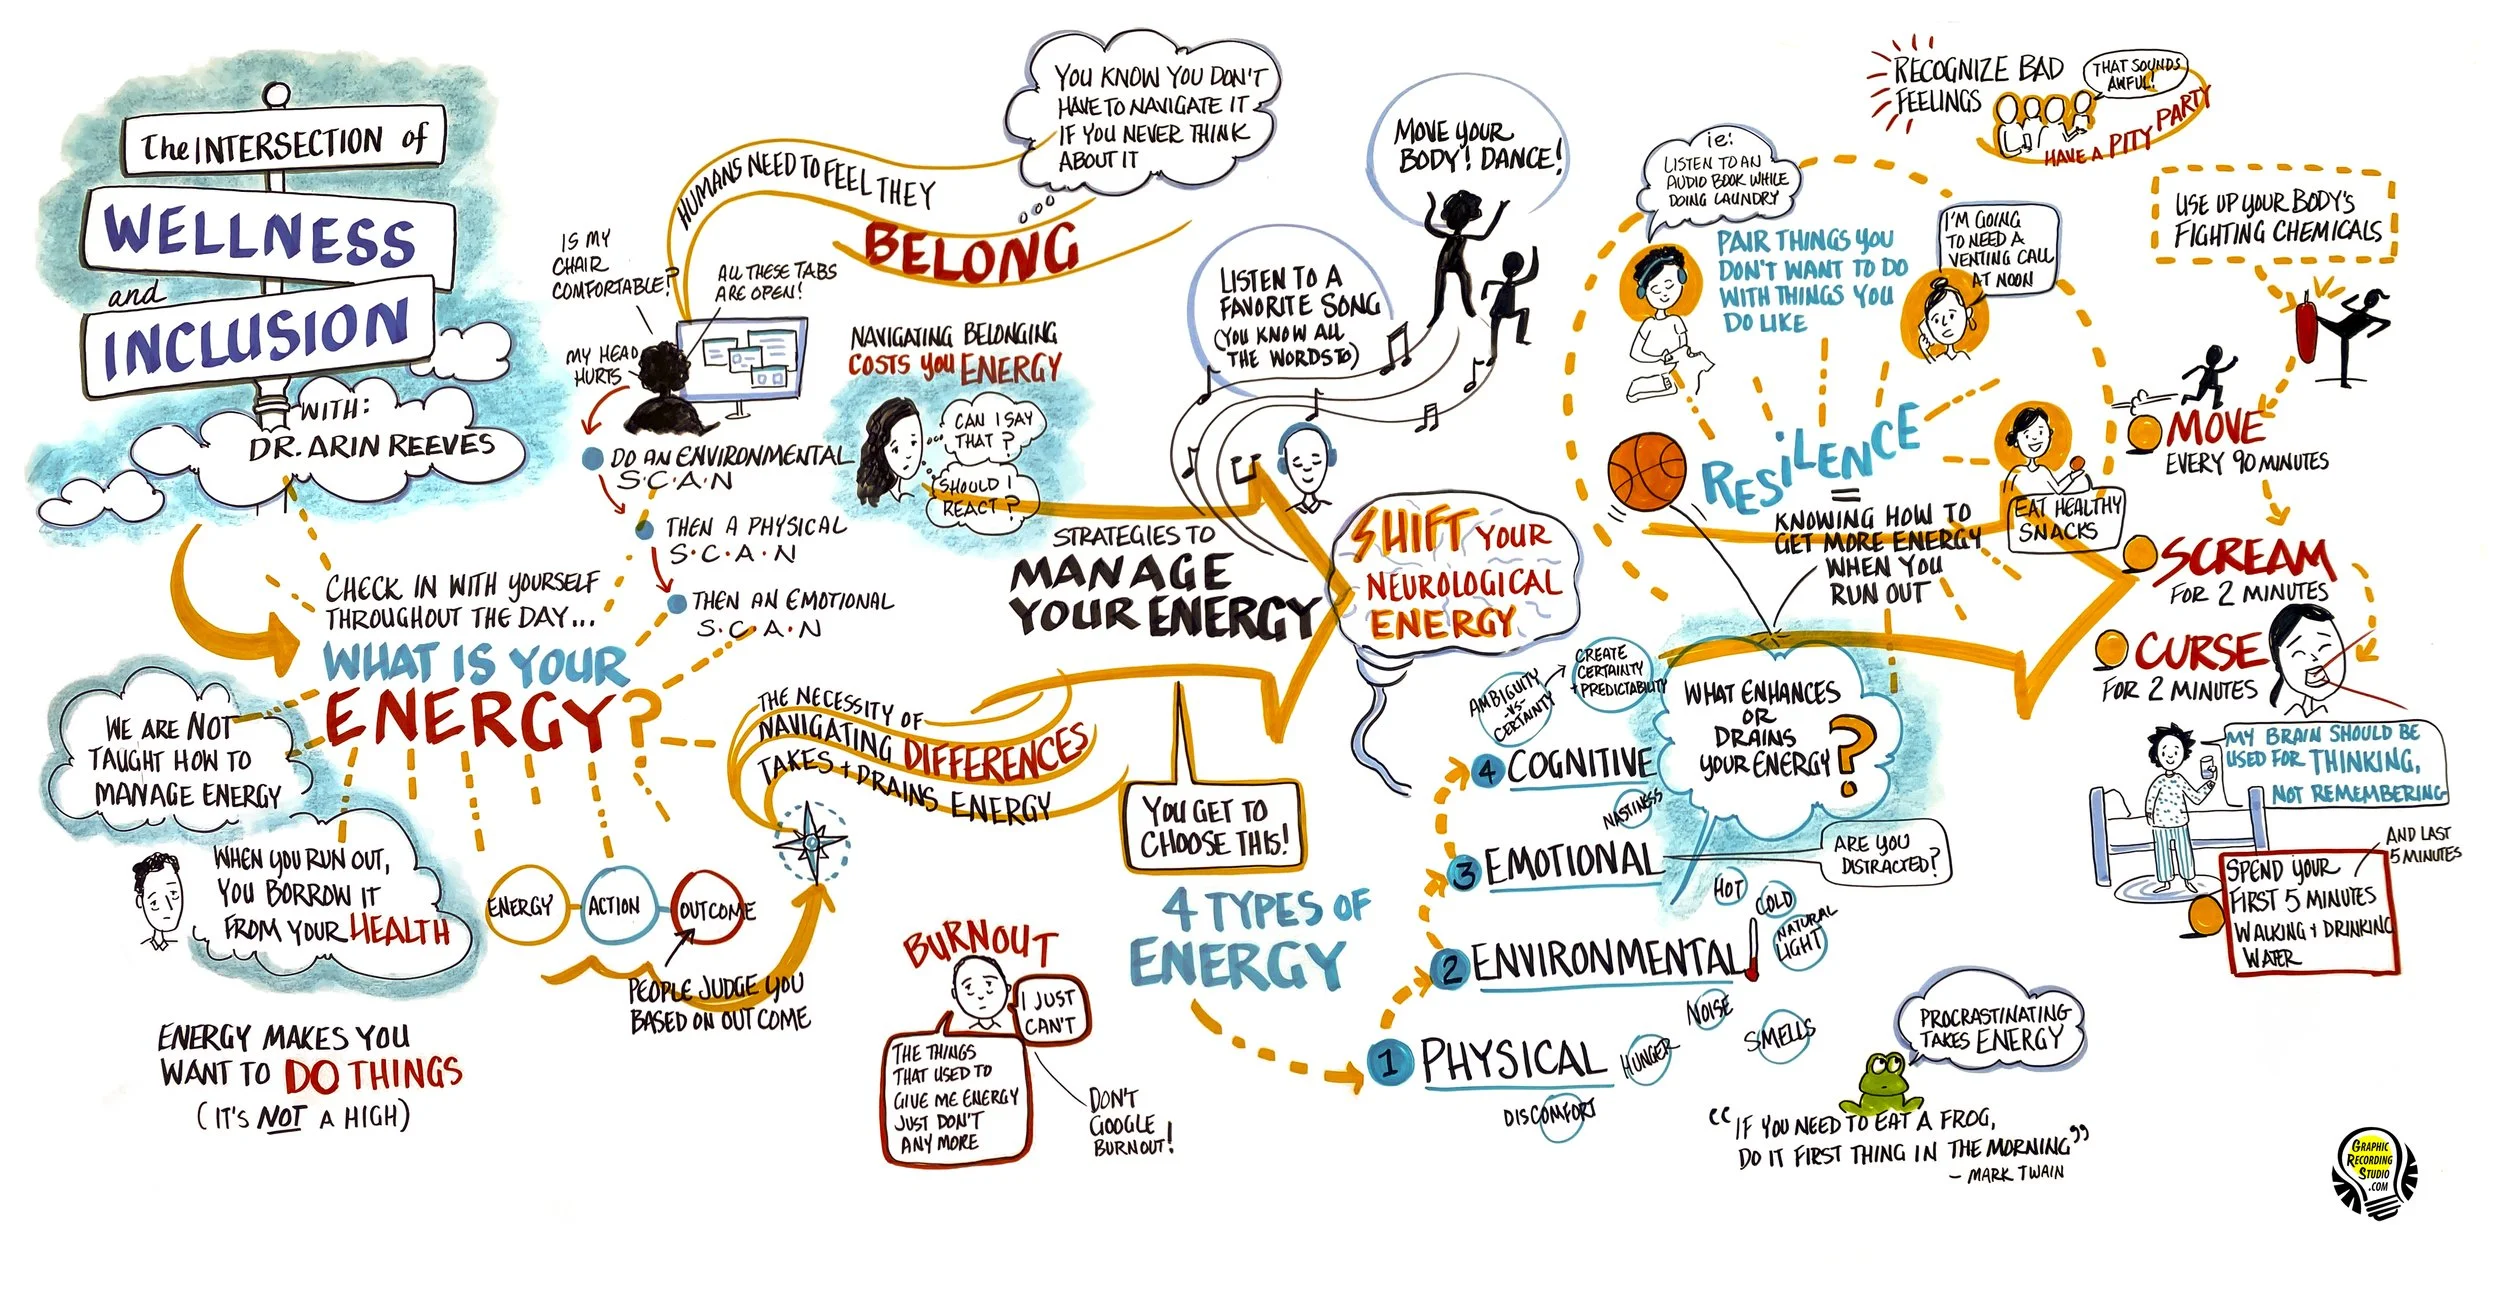 The INTERSECTION of
WELLNESS
and
INCLUSION
WITH:
DR. ARIN REEVES
CHECK IN WITH YOURSELF
THROUGHOUT THE DAY...
WHAT IS YOUR
ENERGY?
WE ARE NOT
TAUGHT HOW TO
MANAGE ENERGY
WHEN YOU RUN OUT,
YOU BORROW IT
FROM YOUR HEALTH
ENERGY MAKES YOU
WANT TO DO THINGS
(IT'S NOT A HIGH)
ENERGY
ACTION
OUTCOME
PEOPLE JUDGE YOU
BASED ON OUTCOME
IS MY
CHAIR
COMFORTABLE?
ALL THESE TABS
ARE OPEN!
MY HEAD
HURTS
DO AN ENVIRONMENTAL
S.C.A.N
THEN A PHYSICAL
S.C.A.N
THEN AN EMOTIONAL
S.C.A.N
HUMANS NEED TO FEEL THEY
BELONG
YOU KNOW YOU DON'T
HAVE TO NAVIGATE IT
IF YOU NEVER THINK
ABOUT IT
NAVIGATING BELONGING
COSTS YOU ENERGY
CAN I SAY
THAT?
SHOULD I
REACT?
THE NECESSITY OF
NAVIGATING DIFFERENCES
TAKES + DRAINS ENERGY
YOU GET TO
CHOOSE THIS!
BURNOUT
I JUST
CAN'T
THE THINGS
THAT USED TO
GIVE ME ENERGY
JUST DON'T
ANY MORE
DON'T
GOOGLE
BURNOUT!
STRATEGIES TO
MANAGE
YOUR ENERGY
LISTEN TO A
FAVORITE SONG
(YOU KNOW ALL
THE WORDS TO)
MOVE YOUR
BODY! DANCE!
SHIFT YOUR
NEUROLOGICAL
ENERGY
4 TYPES OF
ENERGY
1 PHYSICAL
HUNGER
DISCOMFORT
2 ENVIRONMENTAL
HOT
COLD
NATURAL
LIGHT
NOISE
SMELLS
3 EMOTIONAL
NASTINESS
ARE YOU
DISTRACTED?
4 COGNITIVE
AMBIGUITY
-VS-
CERTAINTY
CREATE
CERTAINTY
+ PREDICTABILITY
WHAT ENHANCES
OR
DRAINS
YOUR ENERGY?
RESILENCE
=
KNOWING HOW TO
GET MORE ENERGY
WHEN YOU
RUN OUT
ie:
LISTEN TO AN
AUDIO BOOK WHILE
DOING LAUNDRY
PAIR THINGS YOU
DON'T WANT TO DO
WITH THINGS YOU
DO LIKE
I'M GOING
TO NEED A
VENTING CALL
AT NOON
EAT HEALTHY
SNACKS
RECOGNIZE BAD
FEELINGS
THAT SOUNDS
AWFUL!
HAVE A PITY PARTY
USE UP YOUR BODY'S
FIGHTING CHEMICALS
MOVE
EVERY 90 MINUTES
SCREAM
FOR 2 MINUTES
CURSE
FOR 2 MINUTES
MY BRAIN SHOULD BE
USED FOR THINKING,
NOT REMEMBERING
AND LAST
5 MINUTES
SPEND YOUR
FIRST 5 MINUTES
WALKING + DRINKING
WATER
PROCRASTINATING
TAKES ENERGY
"IF YOU NEED TO EAT A FROG,
DO IT FIRST THING IN THE MORNING"
- MARK TWAIN
GRAPHIC
RECORDING
STUDIO
.COM